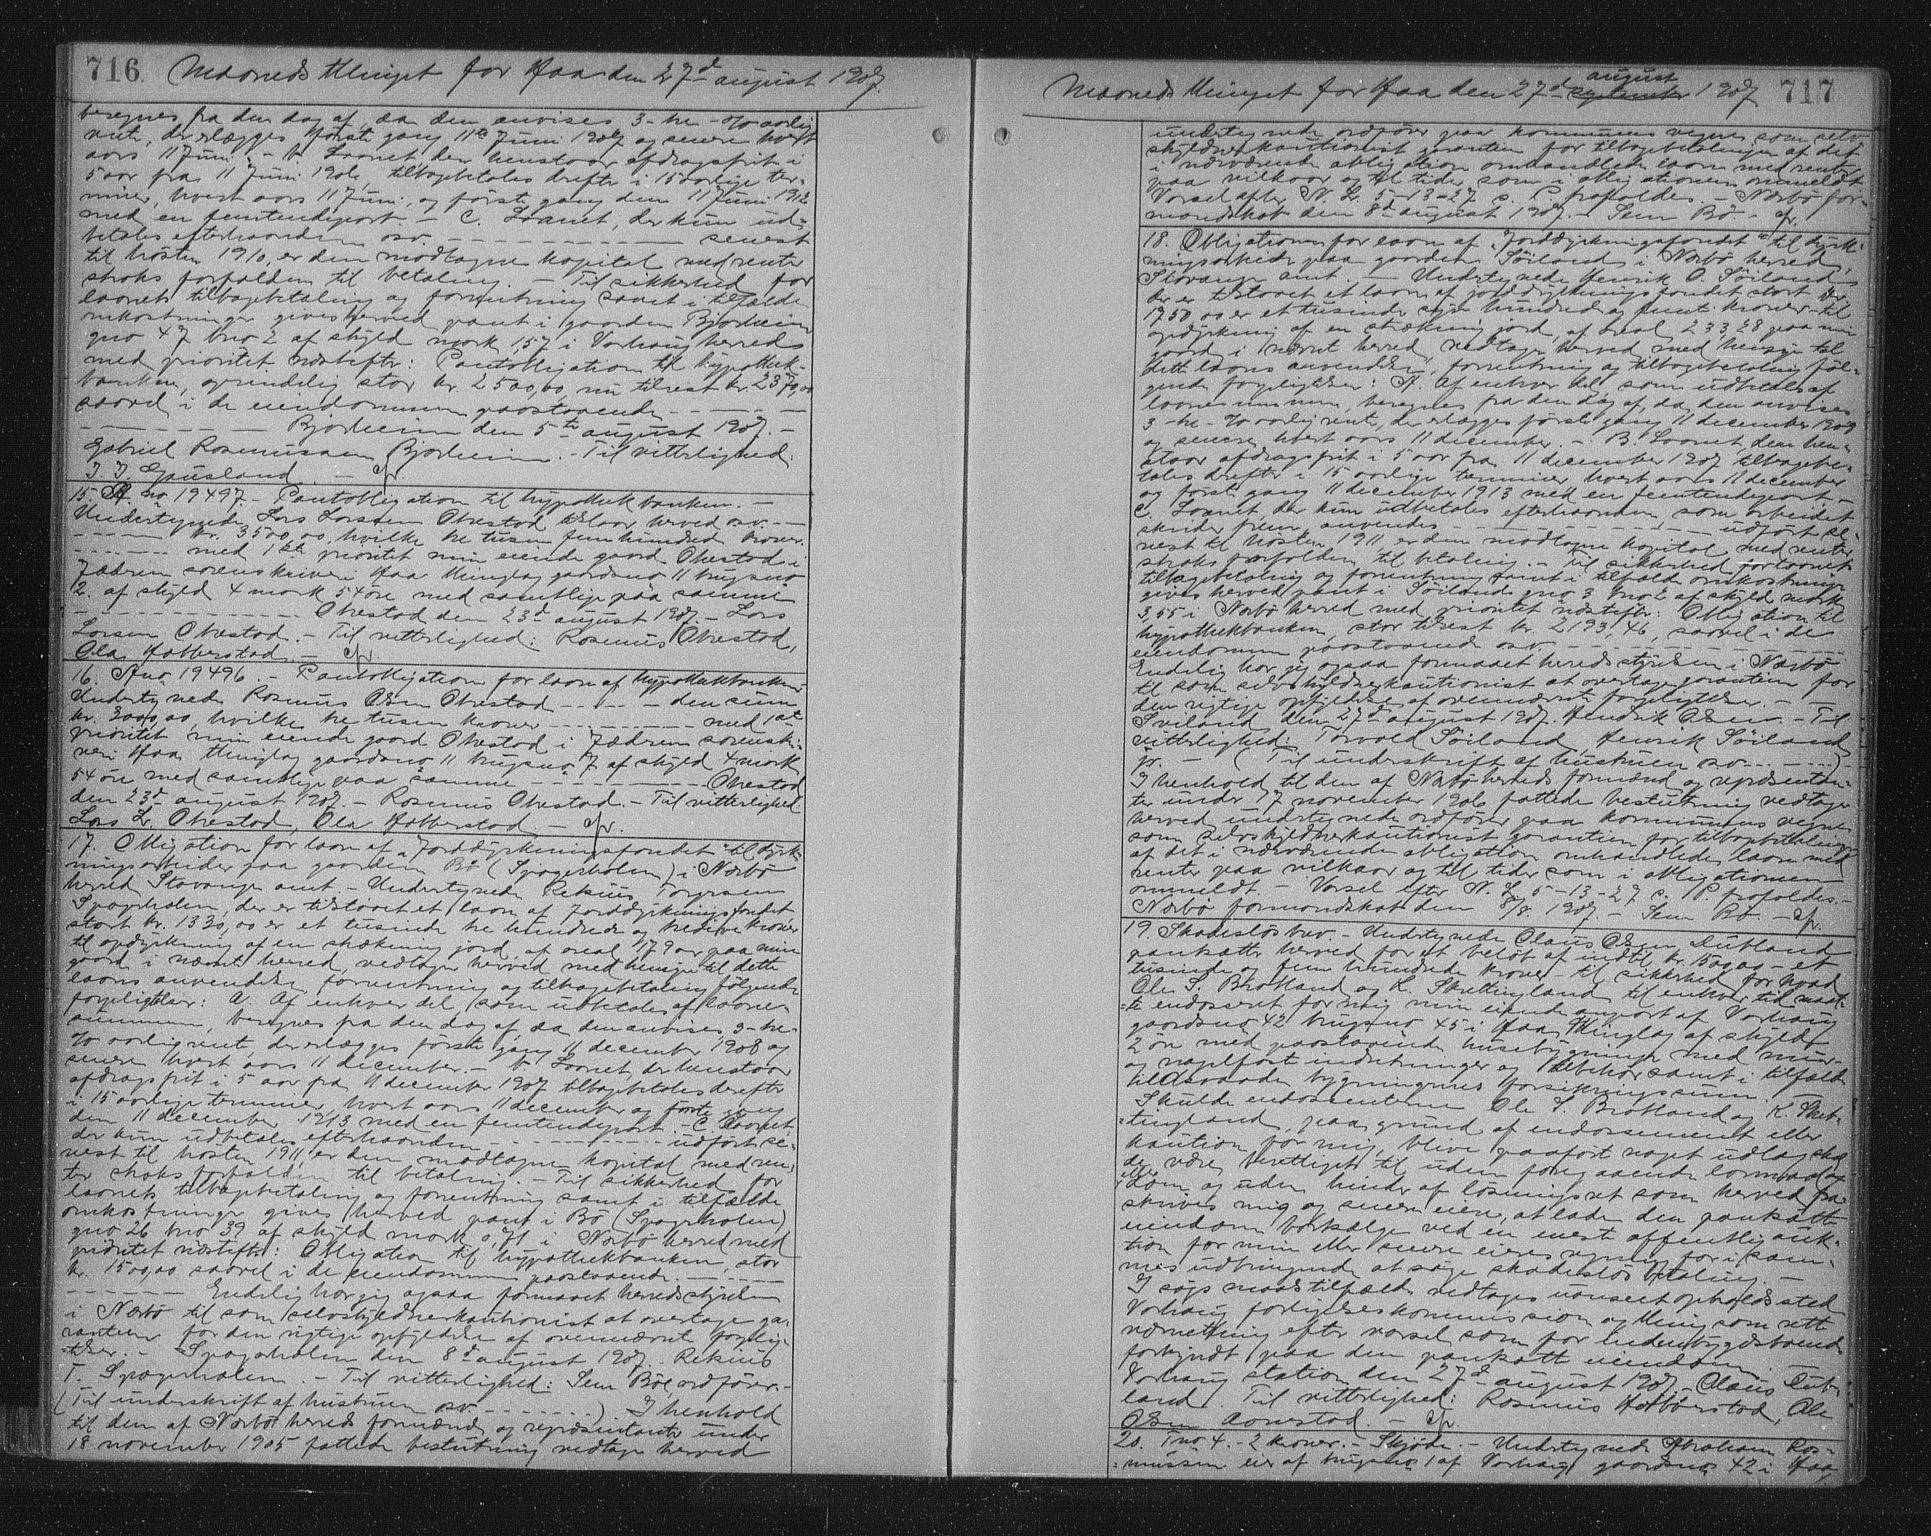 716. Maanedsthinget for Haa den 27d august 1907.
beregnes fra den dag af, da den anvises 3-tre-% aarlig
rente, der erlægges første gang 11te Juni 1907 og senere hvert
aars 11 Juni. - b. Laanet, der henstaar afdragsfrit i
5 aar fra 11 Juni 1906 tilbagebetales derefter i 15 aarlige ter-
miner, hvert aars 11 Juni, og første gang den 11 Juni 1912
med en femtendepart - C. Laanet, der kun ud-
betales efterhaanden osv. - - - senest
til høsten 1910, er den modtagne kapital med renter
straks forfalden til betaling. - Til sikkerhed for
laanets tilbagebetaling og forrentning samt i tilfælde
omkostninger gives herved pant i gaarden Bjorheim
gno 47 bno 2 af skyld mark 1,57 i Varhaug herred
med prioritet næstefter: Pantobligation til hypothek-
banken, oprindelig stor kr. 2500,00, nu tilrest kr. 2370,00
saavel i de eiendommen paastaaende - - -
- - - Bjorheim den 5te august 1907. -
Gabriel Rasmussen Bjorheim. - Til vitterlighed:
T. T. Gausland. -
15. A no 19497. - Pantobligation til hypothekbanken. -
Undertegnede Lars Larssen Obrestad tilstaar herved osv. - -
- - - kr. 3500,00, hvilke tre tusen femhundred kroner.
- - - med 1ste prioritet min eiende gaard Obrestad i
Jæderen sorenskriveri Haa thinglag gaardsno 11 brugsno
2. af skyld 4 mark 54 øre med samtlige paa samme
- - - Obrestad den 23d august 1907. - Lars
Larsen Obrestad. - Til vitterlighed: Rasmus Obrestad,
Ola Haabberstad. -
16. A no 19496. - Pantobligation for laan af hypothekbanken.
Undertegnede Rasmus Olsen Obrestad - - - den sum
kr. 3000,00, hvilke tre tusen kroner - - - med 1st
prioritet min eiende gaard Obrestad i Jæderen sorenskri-
veri Haa thinglag gaardsno 11 brugsno 7 af skyld 4 mark
54 øre med samtlige paa samme - - - Obrestad
den 23d august 1907. - Rasmus Obrestad. - Til vitterlighed
Lars L. Obrestad, Ola Haabberstad. -
17. Obligation for laan af "Jorddyrkningsfondet" til dyrk-
ningsarbeider paa gaarden Bø (Spagerholen) i Nærbø
herred Stavanger amt. - Undertegnede Rekius Torgersen
Spagerholen, der er tilstaaet et laan af Jorddyrkningsfondet,
stort kr. 1330,00 er et tusinde tre hundrede og tredive kroner
til opdyrkning af en strækning jord, af areal 17,9 ar paa min
gaard i nævnt herred, vedtager herved med hensyn til dette
laans anvendelse, forrentning og tilbagebetaling følgende
forpligtelser: a. Af enhver del, som udbetales af laane-
summen, beregnes fra den dag af, da den anvises 3-tre-
% aarlig rente, der erlægges første gang 11 december 1908 og
senere hvert aars 11 december. - b. Laanet, der henstaar
afdragsfrit i 5 aar fra 11 december 1907 tilbagebetales derefter
i 15 aarlige terminer, hvert aars 11 december og første gang
den 11 december 1913 med en femtendepart - C Laanet
der kun udbetales efterhaanden - - - udført se-
nest til høsten 1911, er den modtagne kapital med ren-
ter straks forfalden til betaling. - Til sikkerhed for
laanets tilbagebetaling og forrentning samt i tilfælde
omkostninger gives herved pant i Bø (Spagerholen)
gno 26 bno 39 af skyld mark 0,71 i Nærbø herred med
prioritet næstefter: Obligation til hypothekbanken, stor
kr. 1500,00 saavel i de eiendommen paastaaende. - - -
- - - Endelig har jeg ogsaa formaaet herredsstyrelsen
i Nærbø til som selvskyldnerkautionist at overtage ga-
rantien for den rigtige opfyldelse af ovennævnte forplig-
telser. - Spagerholen den 8d august 1907. - Rekius
T. Spagerholen. - Til vitterlighed: Sem Bøe, ordfører. -
(Til underskrift af hustruen osv. - - -) I henhold
til den af Nærbø herreds formænd og repræsentanter under
18 november 1905 fattede beslutning vedtages herved
Maanedsthinget for Haa den 27d september august 1907 717
undertegnede ordfører paa kommunens vegne som selv-
skyldnerkautionist garantien for tilbagebetalingen af det
i nærværende obligation omhandlede laan med renter
paa vilkaar og til tider som i obligationen ommeldt.
Varsel efter N. L. 5-13-27 c. P. frafaldes. - Nærbø for-
mandskab den 8d august 1907. - Sem Bø -
18. Obligation for laan af "Jorddyrkningsfondet" til dyrk-
ningsarbeide paa gaarden Søiland i Nærbø herred,
Stavanger amt. - Undertegnede Henrik O. Søiland,
der er tilstaaet et laan af jorddyrkningsfondet stort kr.
1950,00 er et tusinde ni hundrede og femti kroner til
opdyrkning af en strækning jord, af areal 233,28 paa min
gaard i nævnt herred, vedtager herved med hensyn til
dette laans anvendelse, forrentning og tilbagebetaling føl-
gende forpligtelser: A. Af enhver del, som udbetales af
laanesummen, beregnes fra den dag af, da den anvises
3-tre-% aarlig rente, der erlægges første gang 11 december 1908
og senere hvert aars 11 december. - B. Laanet, der hen-
staar afdragsfrit i 5 aar fra 11 december 1907 tilbagebe-
tales derefter i 15 aarlige terminer hvert aars 11 december
og første gang 11 december 1913 med en femtendepart -
C. Laanet der kun udbetales efterhaanden som arbeidet
skrider frem, anvendes - - - udført se-
nest til høsten 1911 er den modtagne kapital med renter
straks forfalden til betaling. - Til sikkerhed for laanets
tilbagebetaling og forrentning samt i tilfælde omkostninger
gives herved pant i Søiland gno 3 bno 2 af skyld mark
3,55 i Nærbø herred med prioritet næstefter: Obligation til
hypothekbanken, stor tilrest kr. 2193,46, saavel i de
eiendommen paastaaende osv - - -
Endelig har jeg ogsaa formaaet herredsstyrelsen i Nærbø
til som selvskyldnerkautionist at overtage garantien for
den rigtige opfyldelse af ovennævnte forpligtelser. - -
Søiland den 27d august 1907. Hendrik Olsen. - Til
vitterlighed: Torvald Søiland, Henrik Søiland,
jr. - (Til underskrift af hustruen osv. - - -)
I henhold til den af Nærbø herreds formænd og repræsentan-
ter under 17 november 1906 fattede beslutning vedtager
herved undertegnede ordfører paa kommunens vegne
som selvskyldnerkautionist garantien for tilbagebetalingen
af det i nærværende obligation omhandlede laan med
renter paa vilkaar og til tider som i obligationen
ommeldt - Varsel efter N. L. 5-13-27 c. P. frafaldes. -
Nærbø formandskab den 8/8 1907. - Sem Bø. -
19. Skadesløsbrev. - Undertegnede Claus Olsen Dubland
pantsætter herved for et beløb af indtil kr. 1500,00 - et
tusinde og fem hundrede kroner - til sikkerhed for hvad
Ole S. Brotland og K. Skrettingland til enhver tid maat-
te endosseret for mig min eiende anpart af Varhaug
gaardsno 42 brugsno 45 i Haa thinglag af skyld
2 øre med paastaaende husebygninger med mur-
og nagelfast indretninger og tilbehør samt i tilfælde
ildsvaade bygningernes forsikringssum. -
Skulde endossenterne Ole S. Brotland og K. Skret-
tingland, paa grund af endossement eller
kaution for mig, blive paaført noget udlæg, skal
de være berettiget til uden foregaaende lovmaal og
eller dom og uden hinder af løsningsret som herved fra-
skrives mig og senere eiere, at lade den pantsatte
eiendom bortsælge ved en enest offentlig auk-
tion for min eller senere eieres regning for i sam-
mes udbringende at søge skadesløs betaling. -
I søgsmaalstilfælde vedtages uanseet opholdssted
Varhaug forligelseskommission og thing som rett
værneting efter varsel som for indenbygdsboende
forkyndt paa den pantsatte eiendom. -
Varhaug station den 27d august 1907. Claus Dub-
land. Til vitterlighed: Rasmus Haabberstad, Ole
Olsen Aanestad. -
20. T no 4. - 2 kroner. - Skjøde. - Undertegnede Abraham Ras-
mussen eier af brugsno 1 af Varhaug gaardsno 42 i Haa